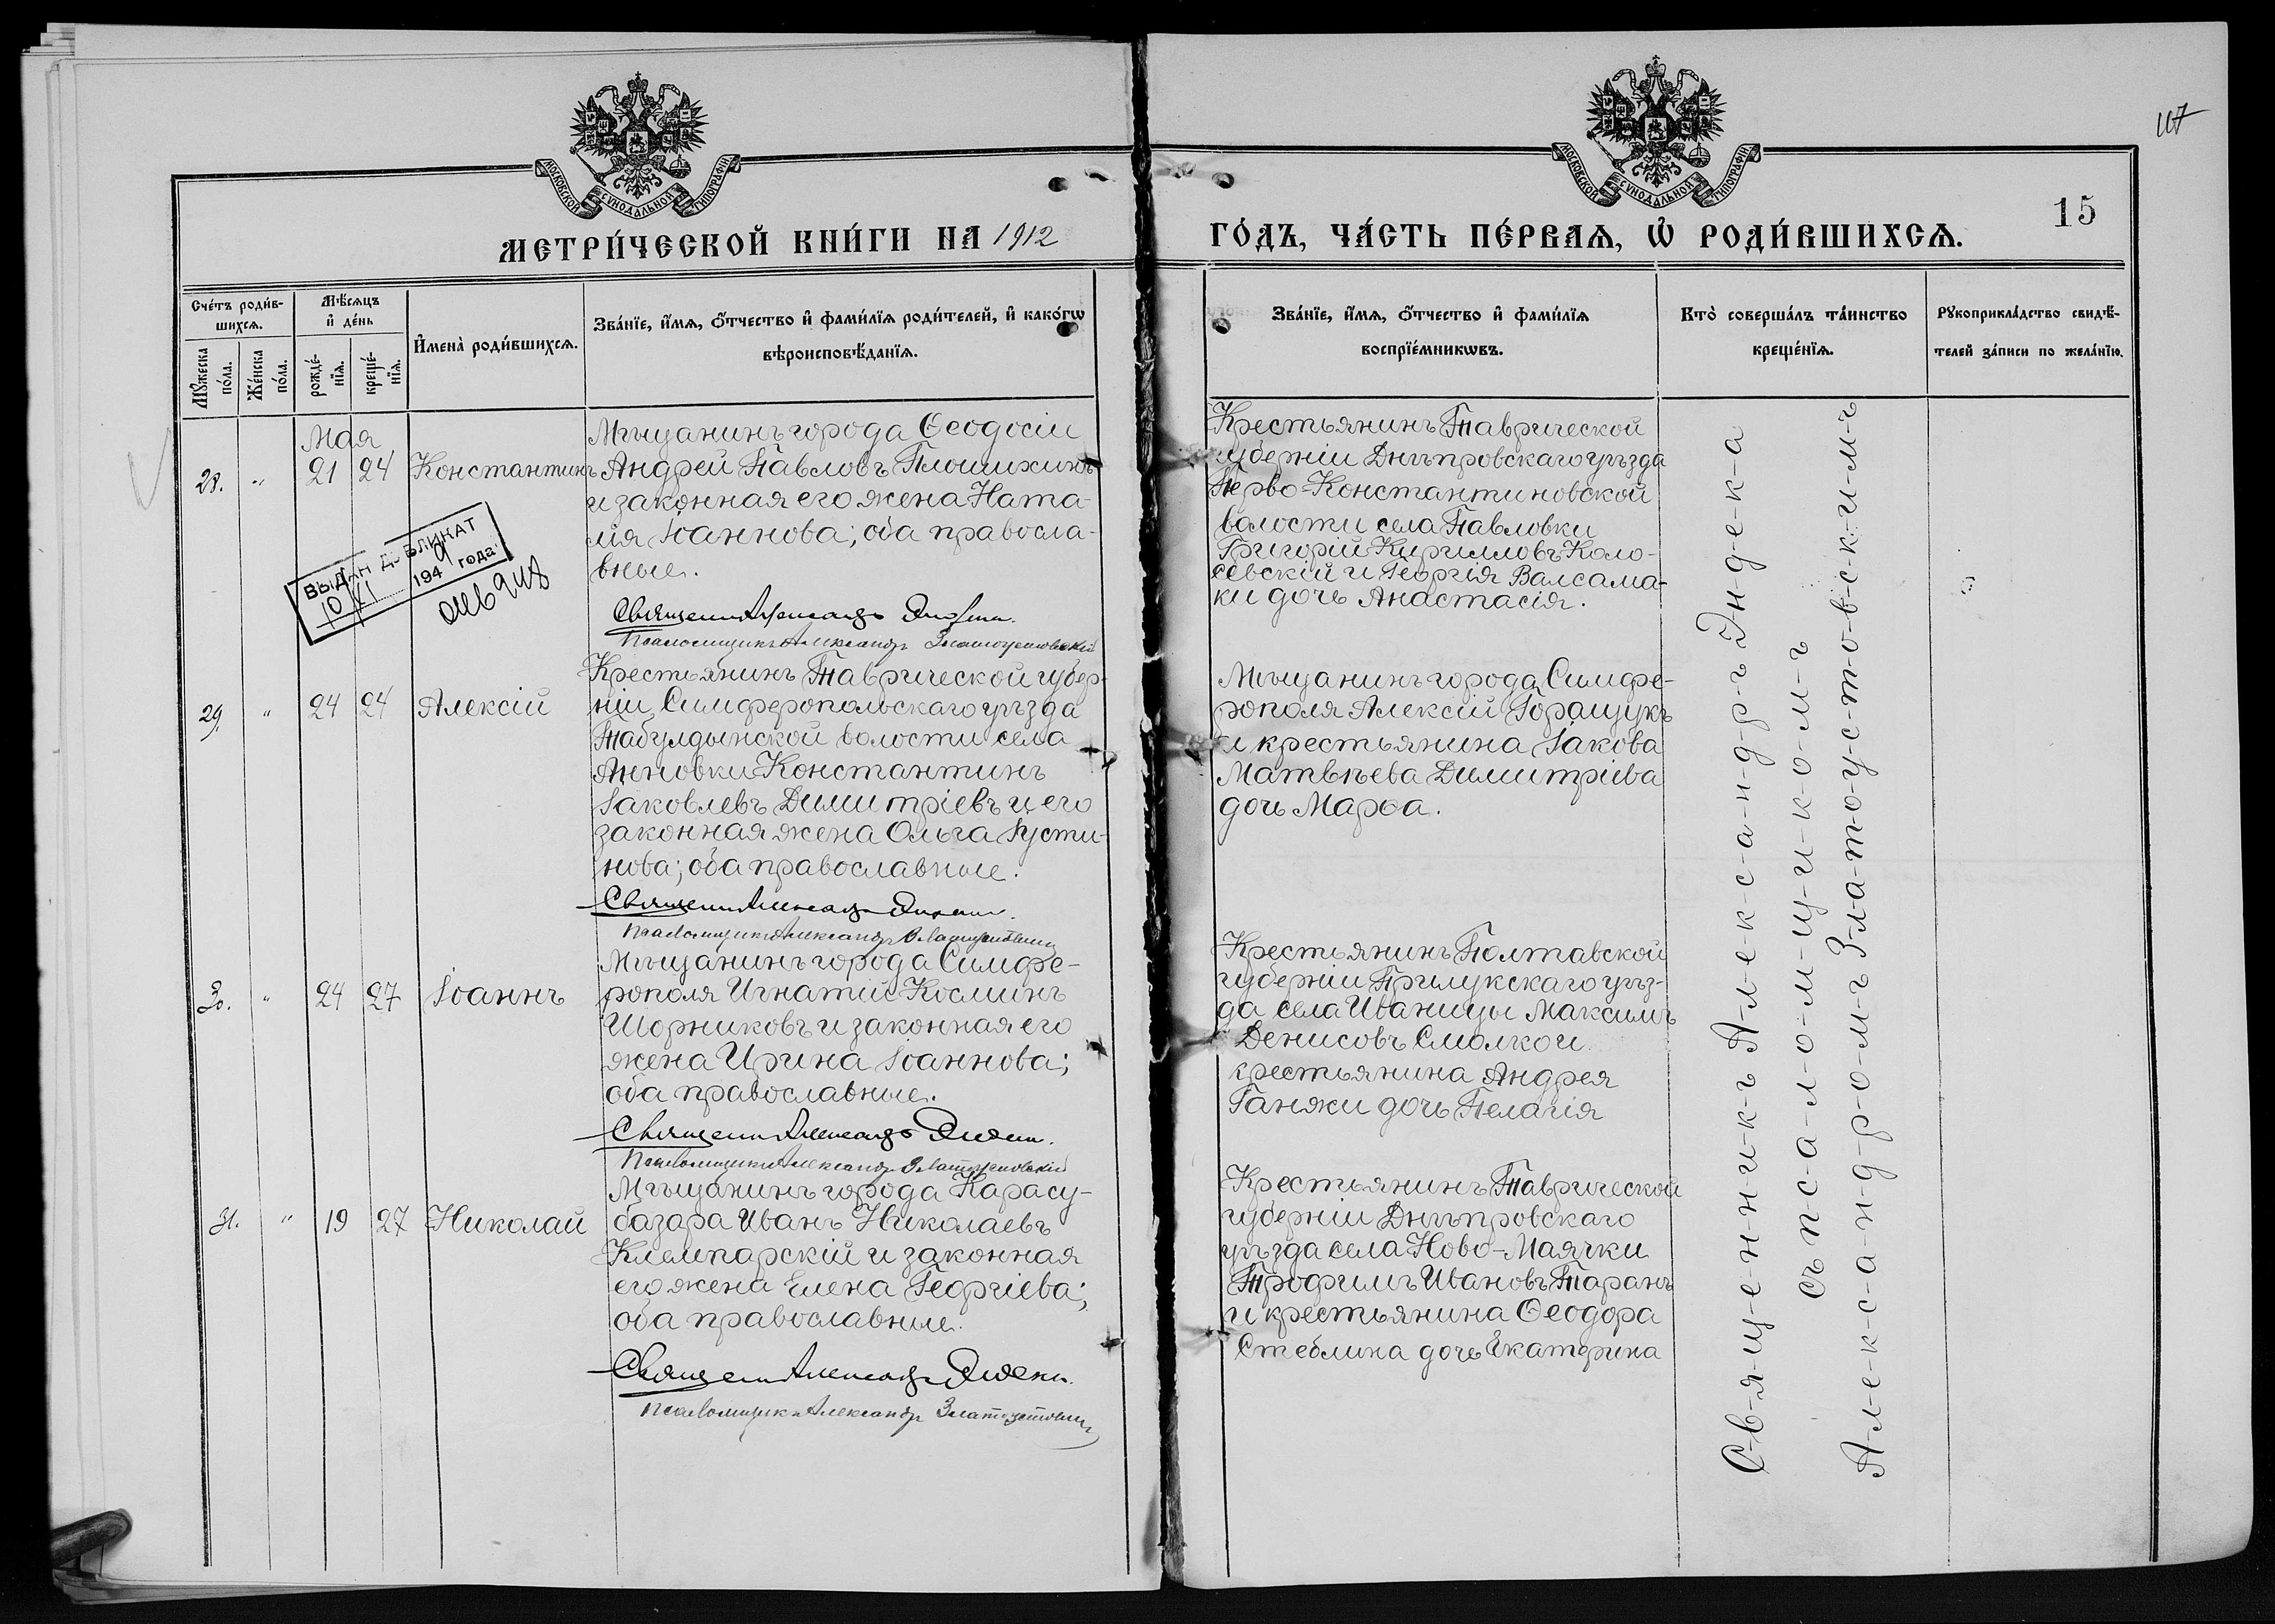 117
МОСКОВСКОЙ СѴНОДАЛЬНОЙ ТИПОГРАФІИ
МОСКОВСКОЙ СѴНОДАЛЬНОЙ ТИПОГРАФІИ
15
МЕТРИ́ЧЕСКОЙ КНИ́ГИ НА 1912
ГО́ДЪ, ЧА́СТЬ ПЕ́РВАѦ, Ѡ҆ РОДИ́ВШИХСѦ.
Сче́тъ роди́в-
шихсѧ.
Мѣ́сѧцъ
и҆ де́нь
Мꙋ́жеска
по́ла.
Же́нска
по́ла.
рожде́-
нїѧ.
креще́-
нїѧ.
И҆мена̀ роди́вшихсѧ.
Зва́нїе, и҆́мѧ, ѻ҆́тчество и҆ фами́лїѧ роди́телей, и҆ како́гѡ
вѣроисповѣ́данїѧ.
Зва́нїе, и҆́мѧ, ѻ҆́тчество и҆ фами́лїѧ
воспрїе́мникѡвъ.
Кто̀ соверша́лъ та́инство
креще́нїѧ.
Рꙋкоприкла́дство свидѣ́-
телей за́писи по жела́нїю.
Мая
28. " 21 24 Константинъ
Мѣщанинъ города Ѳеодосіи
Андрей Павловъ Плошихинъ
и законная его жена Ната-
лія Іоаннова; оба правосла-
вные.
Священникъ Александръ Эндека.
Псаломщикъ Александръ Златоустовскій
ВЫДАН ДУБЛИКАТ
10/XI 1949 года
Крестьянинъ Таврической
губерніи Днѣпровскаго уѣзда
Перво-Константиновской
волости села Павловки
Григорій Кирилловъ Коло-
севскій и Георгія Валсама-
ки дочь Анастасія.
29. " 24 24 Алексій
Крестьянинъ Таврической губер-
ніи, Симферопольскаго уѣзда
Табулдынской волости села
Анновки Константинъ
Іаковлевъ Димитріевъ и его
законная жена Ольга Іусти-
нова; оба православные.
Священникъ Александръ Эндека.
Псаломщикъ Александръ Златоустовскій
Мѣщанинъ города Симфе-
рополя Алексій Горащукъ
и крестьянина Іакова
Матвѣева Димитріева
дочь Марѳа.
30. " 24 27 Іоаннъ
Мѣщанинъ города Симфе-
рополя Игнатій Косминъ
Шорниковъ и законная его
жена Ирина Іоаннова;
оба православные.
Священникъ Александръ Эндека.
Псаломщикъ Александръ Златоустовскій
Крестьянинъ Полтавской
губерніи Прилукскаго уѣз-
да села Иваницы Максимъ
Денисовъ Смолко и
крестьянина Андрея
Ганжи дочь Пелагія
31. " 19 27 Николай
Мѣщанинъ города Карасу-
базара Иванъ Николаевъ
Клемпарскій и законная
его жена Елена Георгіева;
оба православные.
Священникъ Александръ Эндека.
Псаломщикъ Александръ Златоустовскій
Крестьянинъ Таврической
губерніи Днѣпровскаго
уѣзда села Ново-Маячки
Трофимъ Ивановъ Таранъ
и крестьянина Ѳеодора
Стеблина дочь Екатерина
С-в-я-щ-е-н-н-и-к-ъ А-л-е-к-с-а-н-д-р-ъ Э-н-д-е-к-а
съ п-с-а-л-о-м-щ-и-к-о-м-ъ
А-л-е-к-с-а-н-д-р-о-м-ъ З-л-а-т-о-у-с-т-о-в-с-к-и-м-ъ